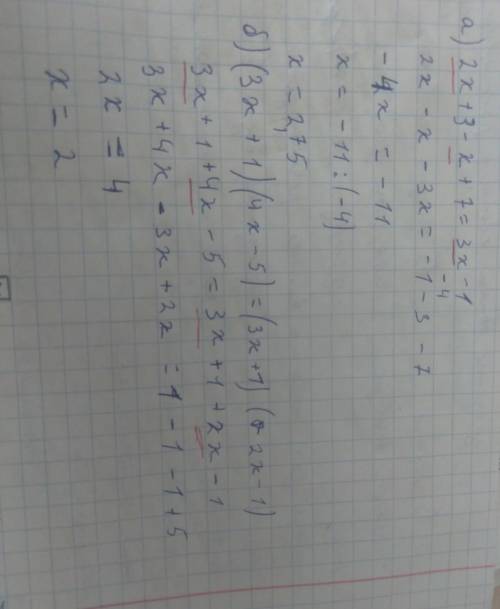 а) 2x + 3 - x + 7 = 3x - 1
-4
2x - x - 3x = -1 - 3 - 7
-4x = -11
x = -11 : (-4)
x = 2,75
б) (3x + 1)(4x - 5) = (3x + 1)(2x - 1)
3x + 1 + 4x - 5 = 3x + 1 + 2x - 1
3x + 4x - 3x + 2x = 1 - 1 - 1 + 5
2x = 4
x = 2